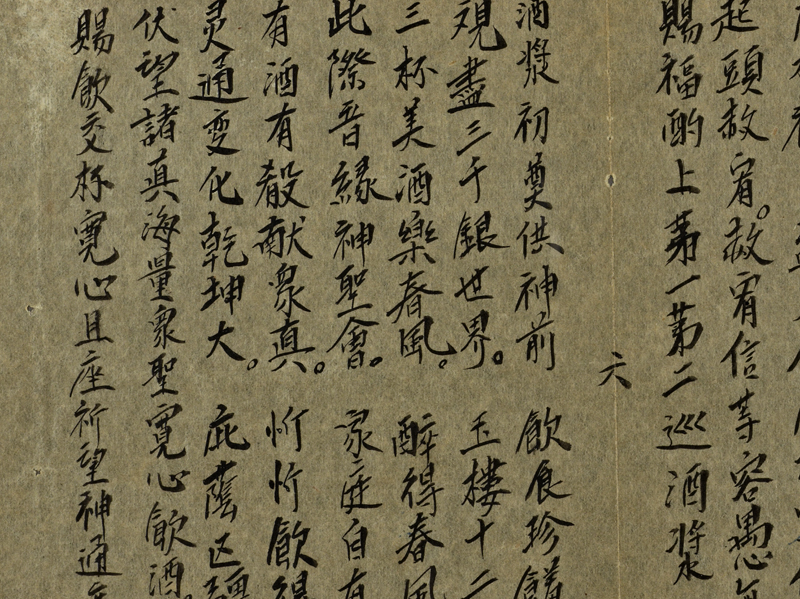 起頭赦宥。赦宥信等容愚
賜福酌上第一第二巡酒漿
六
酒漿初奠供神前 飲食珍饈
覌盡三千銀世界。 玉樓十二
三杯美酒樂春風。 醉得春風
此際晋緣神聖會。 家庭自有
有酒有殽献衆真。 忻忻飲得
灵通变化乾坤大。 庇蔭区疆
伏望諸真海量衆聖寬心飲酒。
賜飲交杯寬心且座祈望神通